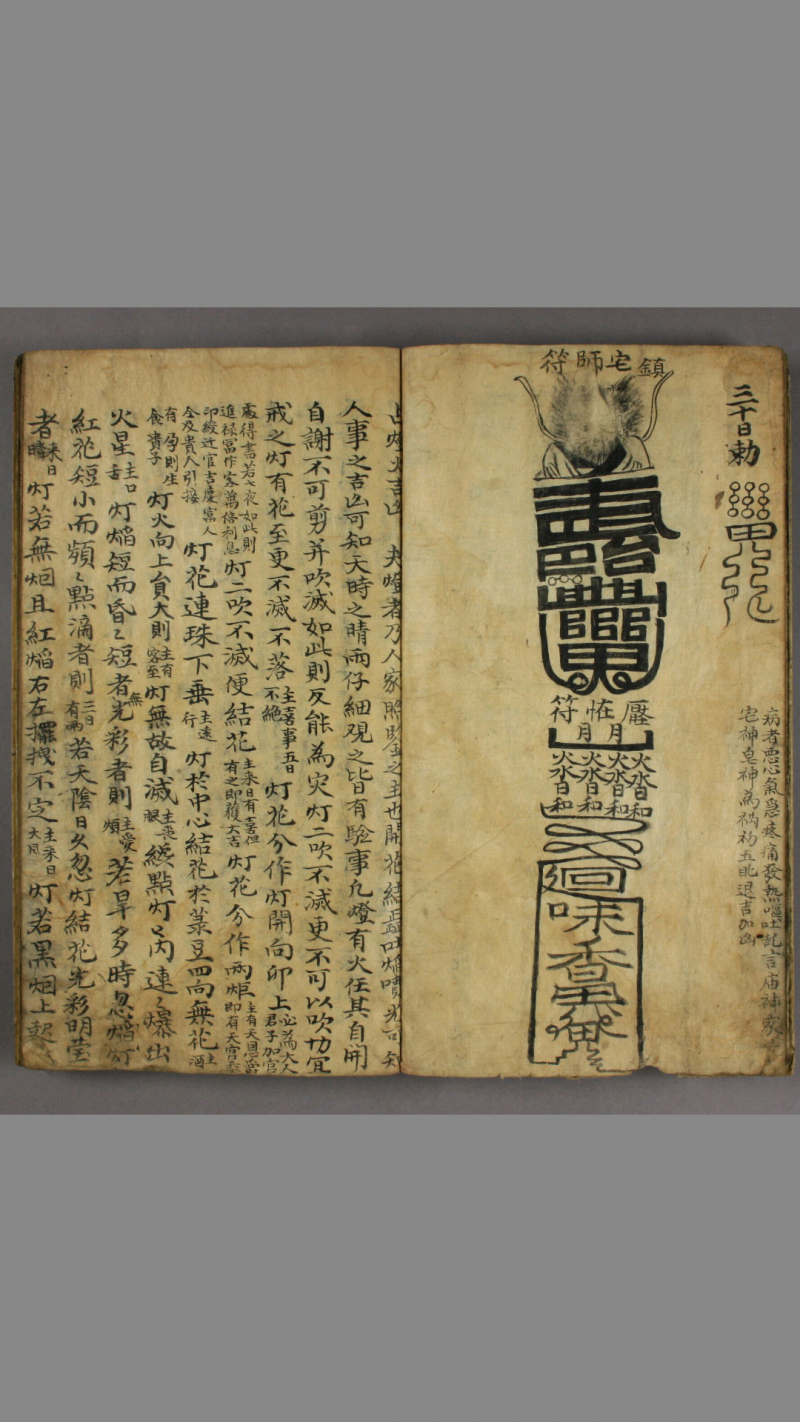 三十日勅
病者惡心氣急疼痛發熱嘔吐乱言庙神家
宅神皂神為禍初五眂退吉加凶
鎮宅師符
壓恠符
月月
火沓日和火沓日和火沓日和火沓日和
迴
味
香
占灯火吉凶 夫燈者乃人家照鑒之主也開花結蕊吐熖噴光可知
人事之吉凶可知天時之晴雨仔細观之皆有驗事凢燈有火任其自開
自謝不可剪并吹滅如此則反能為灾灯二吹不滅更不可以吹切宜
戒之灯有花至更不滅不落主喜事五日不絶灯花分作灯開向卯上必為大人君子加官
進禄冨作客萬倍利息處得書若七夜如此則灯二吹不滅便結花主来日有喜但有之即獲大吉灯花分作兩炬主有天恩當即有天宫
印綬迁官吉慶寓人全及貴人引接灯花連珠下垂主遠行灯於中心結花於菉豆四向無花主酒
食有孕則生貴子灯火向上負大則主有客至灯無故自滅主丧眼纔點灯灯内連〻爆出
火星主口舌灯熖短而昏〻短者無光彩者則主愛煩若旱多時忽熖灯
紅花短小而頻〻點滴者則三日有雨若天陰日久忽灯結花光彩明莹
者来日晴灯若無烟且紅熖右左擺拽不定主来日大風灯若黑烟上起